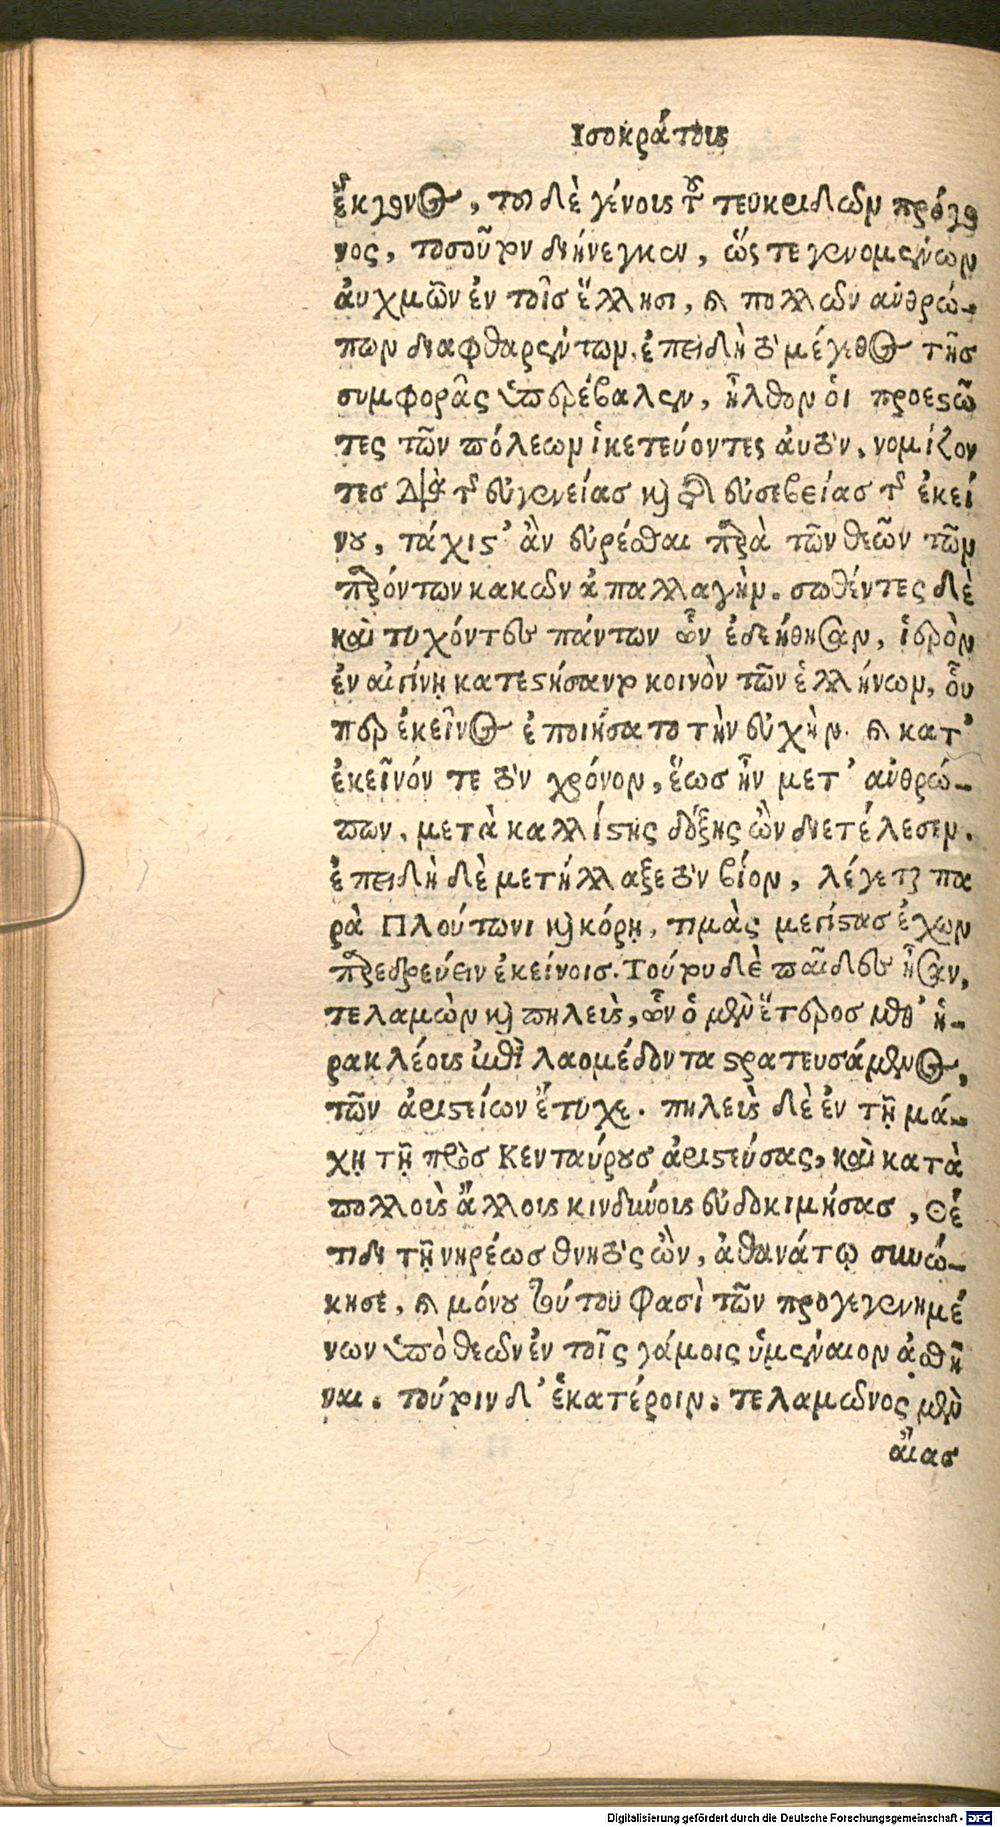 Ισοκράτους
ἔκγονος, τοῦ δὲ γένους τοῦ τευκριδῶν πρόγο
νος, τοσοῦτον διήνεγκεν, ὥστε γενομένων
ἀυχμῶν ἐν τοῖσ ἕλλησι, καὶ πολλῶν ἀνθρώ-
πων διαφθαρέντων, ἐπειδὴ τὸ μέγεθος τῆσ
συμφορᾶς ὑπερέβαλεν, ἦλθον ὁι προεστῶ
τες τῶν πόλεων ἱκετεύοντες ἀυτὸν, νομίζον
τεσ διὰ τῆς εὐγενείασ καὶ τῆς εὐσεβείασ τῆς ἐκεί
νου, τάχιστ' ἂν εὑρέσθαι παρὰ τῶν θεῶν τῶν
παρόντων κακῶν ἀπαλλαγὴν. σωθέντες δὲ
καὶ τυχόντες πάντων ὧν ἐδεήθησαν, ἱερὸν
ἐν αἰγίνῃ κατεστήσαντο κοινὸν τῶν ἑλλήνων, οὗ
περ ἐκεῖνος ἐποιήσατο τὴν εὐχὴν. καὶ κατ'
ἐκεῖνόν τε τὸν χρόνον, ἕωσ ἦν μετ' ἀνθρώ-
πων, μετὰ καλλίστης δόξης ὢν διετέλεσεν.
ἐπειδὴ δὲ μετήλλαξε τὸν βίον, λέγεται πα
ρὰ Πλούτωνι καὶ κόρῃ, τιμὰς μεγίστασ ἔχων
παρεδρεύειν ἐκείνοισ. Τούτου δὲ παῖδες ἦσαν,
τελαμὼν καὶ πηλεὺς, ὧν ὁ μὲν ἕτεροσ μεθ' ἡ-
ρακλέους ἐπὶ λαομέδοντα στρατευσάμενος,
τῶν ἀριστείων ἔτυχε. πηλεὺς δὲ ἐν τῇ μά-
χῃ τῇ πρὸσ Κενταύρουσ ἀριστεύσας, καὶ κατὰ
πολλοὺς ἄλλους κινδύνους εὐδοκιμήσασ, Θέ
τιδι τῇ νηρέωσ θνητὸς ὢν, ἀθανάτῳ συνώ-
κησε, καὶ μόνου τούτου Φασὶ τῶν προγεγενημέ
νων ὑπὸ θεῶν ἐν τοῖς γάμοις ὑμέναιον ἀσθῆ
ναι. τούτοιν δ' ἑκατέροιν. τελαμῶνος μὲν
αἴασ
Digitalisierung gefördert durch die Deutsche Forschungsgemeinschaft - DFG